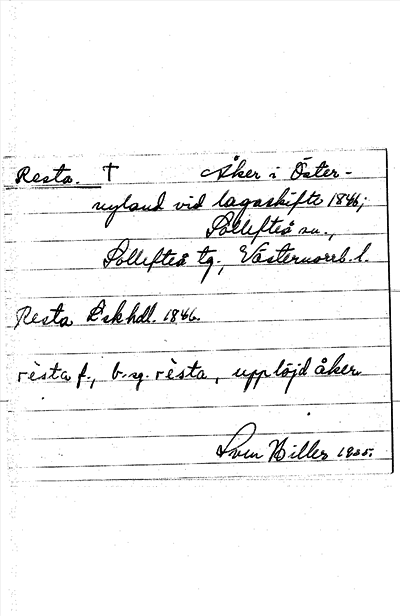 Resta. † Åker i Öster-
nyland vid lagaskifte 1846;
Sollefteå sn.,
Sollefteå tg., Västernorrb. l.
Resta Lskhdl. 1846.
rèsta f., b. sg. rèsta, upplöjd åker
Sven Hiller 1925.